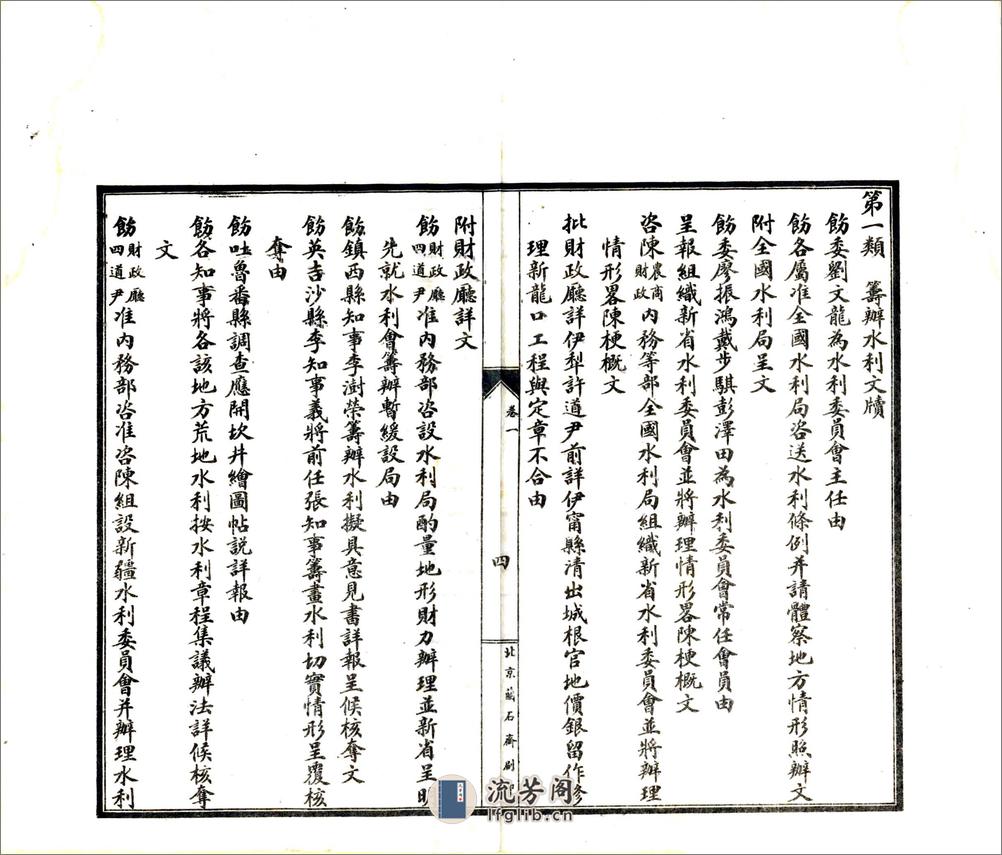 第一類　籌辦水利文牘
飭委劉文龍為水利委員會主任由
飭各屬准全國水利局咨送水利條例并請體察地方情形照辦文
附全國水利局呈文
飭委廖振鴻戴步騏彭澤田為水利委員會常任會員由
呈報組織新省水利委員會並將辦理情形畧陳梗概文
咨陳農商財政內務等部全國水利局組織新省水利委員會並將辦理
情形畧陳梗概文
批財政廳詳伊犁許道尹前詳伊甯縣清出城根官地價銀留作修
理新龍口工程與定章不合由
卷一
四
北京藏石齋
附財政廳詳文
飭財政廳四道尹准內務部咨設水利局酌量地形財力辦理並新省呈明
先就水利會籌辦暫緩設局由
飭鎮西縣知事李澍榮籌辦水利擬具意見書詳報呈候核奪文
飭英吉沙縣李知事義將前任張知事籌畫水利切實情形呈覆核
奪由
飭吐魯番縣調查應開坎井繪圖帖說詳報由
飭各知事將各該地方荒地水利按水利章程集議辦法詳候核奪
文
飭財政廳四道尹准內務部咨准咨陳組設新疆水利委員會并辦理水利
流芳阁
lfglib.cn